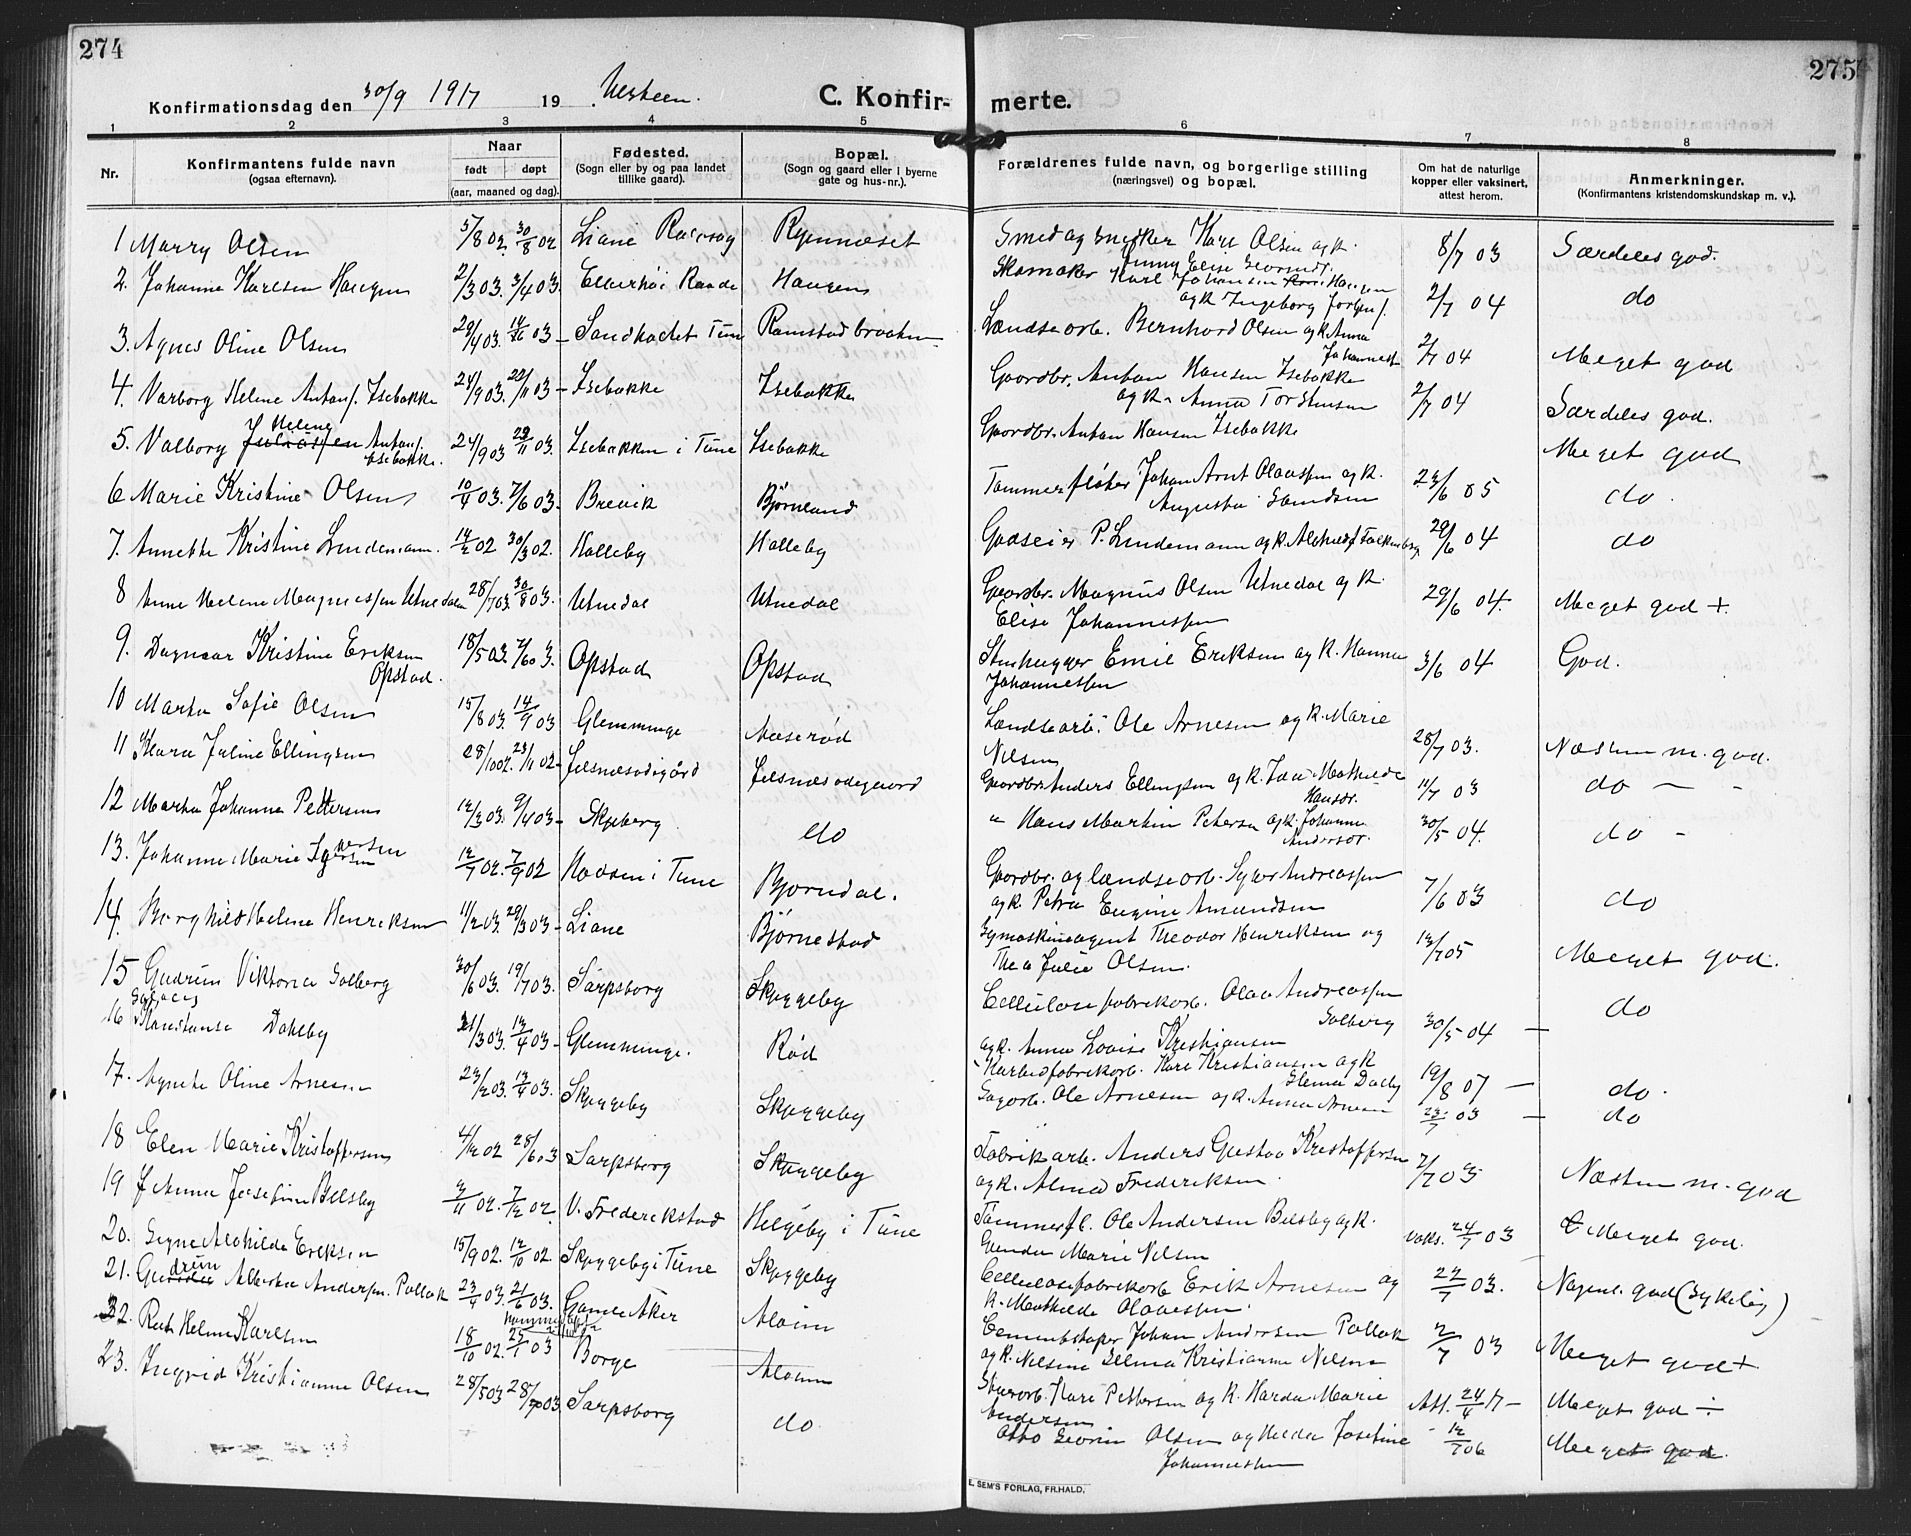 274
Konfirmationsdag den 30/9 1917 19
C. Konfir-
1 2 3 4 5
Nr.
Konfirmantens fulde navn
(ogsaa efternavn).
Naar
født døpt
(aar, maaned og dag).
Fødested.
(Sogn eller by og paa landet
tillike gaard).
Bopæl.
(Sogn og gaard eller i byerne
gate og hus-nr.).
1 Marry Olsen 5/8 02. 30/8 02 Liane
2. Johanne Karlsen Haugen 2/3 03. 3/4 03. Raade Haugen
3. Agnes Oline Olsen 29/4 03. 03 Tune Ramstadbraaten
4. Varborg Helene Antons. Isebakke 24/9 03. 22/11 03 Isebakke Isebakke
5. Valborg Helene Antons. Isebakke. 24/9 03 29/11 03. Isebakken i Tune Isebakke
6 Marie Kristine Olsen 10/4 03. 7/6 03. Brevik Bjørneland
7. Annette Kristine Lundemann. 14/2 02 30/3 02. Halleby Halleby
8 Anne Helene Magnussen Utnedalen 28/7 03. 30/8 03. Utnedal Utnedal
9. Dagmar Kristine Eriksen Opstad. 18/5 03. Opstad Opstad
10 Marta Sofie Olsen 15/8 03. 14/9 03 Glemminge Aaserød
11 Klara Juline Ellingsen 28/10 02. 23/11 02
12 Marta Johanne Pettersen 12/3 03. 9/4 03 Skjeberg do
13. Johanne Marie 12/7 02. 7/9 02 i Tune Bjørndal.
14. Borghild Helene Henriksen 11/2 03. 29/3 03 Liane Bjørnestad
15 Gudrun Viktoria Solberg 30/6 03. 19/7 03. Sarpsborg Skyggeby
16 Konstanse Dahlby 21/3 03. 13/4 03 Glemminge. Rød
17. Agnete Oline Arnesen 23/2 03. 13/4 03. Skyggeby Skyggeby
18 Elen Marie Kristoffersen 4/12 02 28/6 03 Sarpsborg Skyggeby
19 Anna Josefine Bilsby 9/11 02. 7/12 02. V. Frederikstad Helgeby i Tune
20. Signe Alvhilda Eriksen 15/9 02. 12/10 02 Skyggeby i Tune Skyggeby
21. Gudrun Andersen Pollak 23/4 03. 21/6 03. Gamle Aker Alvim
22. Rut Helene Karlsen 18/10 02. 25/1 03 Borge Alvim
23. Ingrid Kristianne Olsen 28/5 03 28/ 03 Sarpsborg do
275
merte.
6 7 8
Forældrenes fulde navn, og borgerlige stilling
(næringsvei) og bopæl.
Om hat de naturlige
kopper eller vaksinert,
attest herom.
Anmerkninger.
(Konfirmantens kristendomskundskap m. v.).
Smed og snekker Karl Olsen og k. 8/7 03 Særdeles god.
Skomaker Karl Johansen Haugen
og k. Ingeborg 2/7 04 do
Landsearb. Bernhard Olsen og k. Anna
Johannest. 2/7 04 Meget god
Gaardbr. Anton Hansen Isebakke
og k. Anna Torstensen 2/7 04 Særdeles god.
Gaardbr. Anton Hansen Isebakke Meget god
Tømmerfløter Johan Arnt Olaussen og k.
Augusta 23/6 05 do.
Godseier P. Lundemann og k. 29/6 04 do
Gaardbr. Magnus Olsen Utnedal og k.
Elise Johannessen 29/6 04. Meget god +.
Stenhugger Emil Eriksen og k. Hanna
Johannessen 3/6 04 God.
Landsearb. Ole Arnesen og k. Marie
Nilsen 28/7 03. Næsten m. god.
Gaardbr. Anders Ellingsen og k. Mathilde
11/7 03 do
" Hans Martin Petersen og k. Johanne
Anders. 30/5 04. do
Gaardbr. og landsearb. Syver Andreassen
og k. Petra Eugine Amundsen 7/6 03 do
Symaskineagent Theodor Henriksen og
Thea Julie Olsen. 13/7 05 Meget god.
Cellulosefabrikarb. Olav Andreassen
Solberg
og k. Anna Lovise Kristiansen 30/5 04 do
Karbidfabrikarb. Karl Kristiansen og k
19/8 07 do.
Sagarb. Ole Arnesen og k. Anna Arnesen 23/7 03 do
Fabrikarb. Anders Gustav Kristoffersen
og k. Alma Frederiksen. 2/7 03 Næsten m. god
Tømmerfl. Ole Andersen Bilsby og k.
Marie Nilsen vaks. 24/7 03 Meget god.
Cellulosefabrikarb Erik Arnesen og
k. Mathilde Olavessen. 27/7 03. god (Sykelig)
Johan Andersen Pollak
og k. Nilsine Selma Kristianne Nilsen 2/7 03 Meget god +
Karl Pettersen og k. Marie
Andersen Att. 24/4 17 Meget god ÷
Otto Olsen og k. Josefine
Johannessen 12/7 06 Meget god
E. SEM'S FORLAG, FR.HALD.